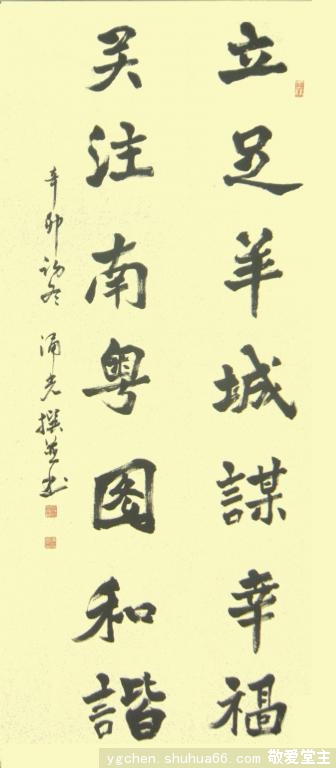 立足羊城謀幸福
关注南粤图和諧
辛卯初冬 涌光撰並书
ygchen.shuhua66.com 敬爱堂主